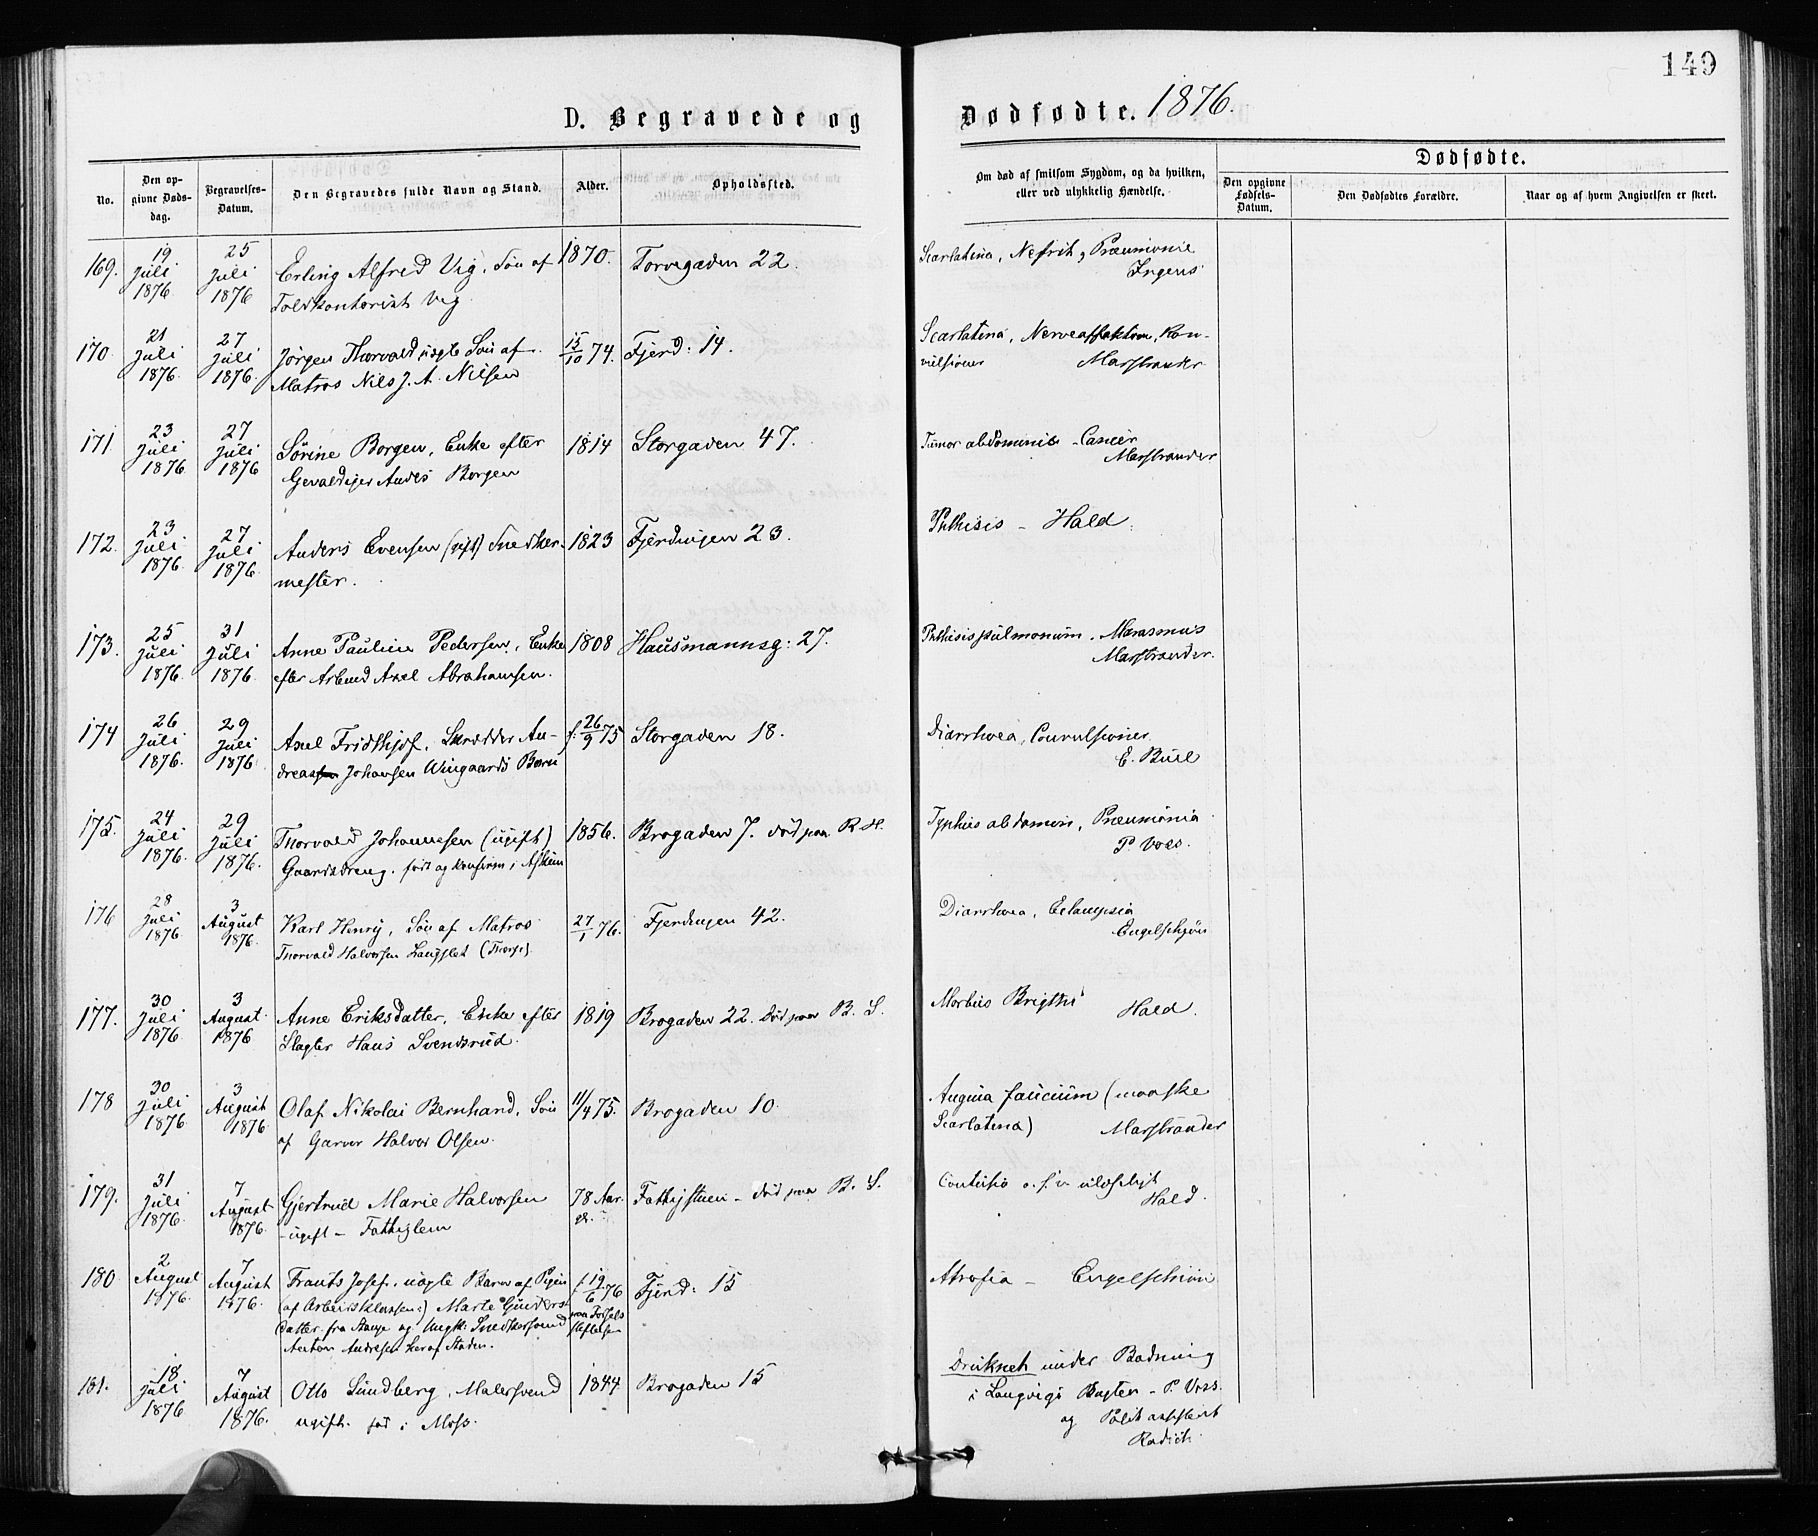 149
D. Begravede og Dødfødte. 1876.
No.
Den opgivne Dødsdag.
Begravelses-Datum.
Den Begravedes fulde Navn og Stand.
Alder.
Opholdssted.
Om død af smitsom Sygdom, og da hvilken, eller ved ulykkelig Hændelse.
Dødfødte.
Den opgivne Fødsels-Datum.
Den Dødfødtes Forældre.
Naar og af hvem Angivelsen er skeet.
169. 19 Juli 1876. 25 Juli 1876 Erling Alfred Vig, Søn af 1870. Torvegaden 22. Scarlatina, Nefrit, Pneumonie
Toldkontorist Vig. Irgens
170. 21 Juli 1876. 27 Juli 1876. Jörgen Thorvald, uægte Søn af 15/10 74. Fjerd: 14. Scarlatina, Nerveaffektion, Kon-
Matros Nils J. A. Nilsen vulsioner Marstrander
171. 23 Juli 1876. 27 Juli 1876 Sörine Borgen, Enke efter 1814 Storgaden 47. Tumor abdominis - Cancer
Gevaldiger Anders Borgen Marstrander
172. 23 Juli 1876. 27 Juli 1876. Anders Evensen (gift) Snedker- 1823 Fjerdingen 23. Phthisis - Hald
mester.
173. 25 Juli 1876. 31 Juli 1876. Anne Pauline Pedersen, Enke 1808 Hausmannsg: 27. Phthisis pulmonum. Marasmus
efter Arbmd Axel Abrahamsen. Marstrander.
174 26 Juli 1876. 29 Juli 1876. Axel Fridthjof, Skrædder An- f. 26/9 75 Storgaden 18. Diarrhoea, Convulsioner
dreassen Johansen Wingaards Barn E. Bull
175. 24 Juli 1876. 29 Juli 1876. Thorvald Johannesen (ugift) 1856. Brogaden 7. død paa R. H. Typhus abdomin, Pneumonia
Gaardsdreng. født og konfirm i Askim P. Voss.
176 28 Juli 1876. 3 August 1876. Karl Henry, Søn af Matros 27/1 76. Fjerdingen 42. Diarrhoea, Eclampsia
Thorvald Halvorsen Langslet Engelschjøn
177. 30 Juli 1876. 3 August 1876 Anne Eriksdatter, Enke efter 1819 Brogaden 22. død paa B. S. Morbus Brigthi
Slagter Hans Svendsrud. Hald.
178 30 Juli 1876. 3 August 1876. Olaf Nikolai Bernhard, Søn 11/4 75. Brogaden 10. Angina faucium (maaske
af Garver Halvor Olsen. Scarlatina) Marstrander
179. 31 Juli 1876. 7 August 1876. Gjertrud Marie Halvorsen 78 Aar gl. Fattigstuen - død paa B. S. Contusio o. s. v. ulæseligt
- ugift - Fattiglem Hald.
180 2 August 1876. 7 August 1876. Frants Josef, uægte Barn af Pigen f. 19/6 76 Fjerd: 15 Atrofia - Engelschiøn
(af Arbeidsklassen:) Marte Gunders- paa Fødsels
datter fra Stange og Ungk: Snedkersvend stiftelsen
Anton Andresen her af Staden.
181. 18 Juli 1876 7 August 1876. Otto Sundberg, Malersvend 1844. Brogaden 15 Druknet under Badning
ugift. fød i Moss. i Langvigs Bugten - P. Voss.
og Politiassistent
Radich